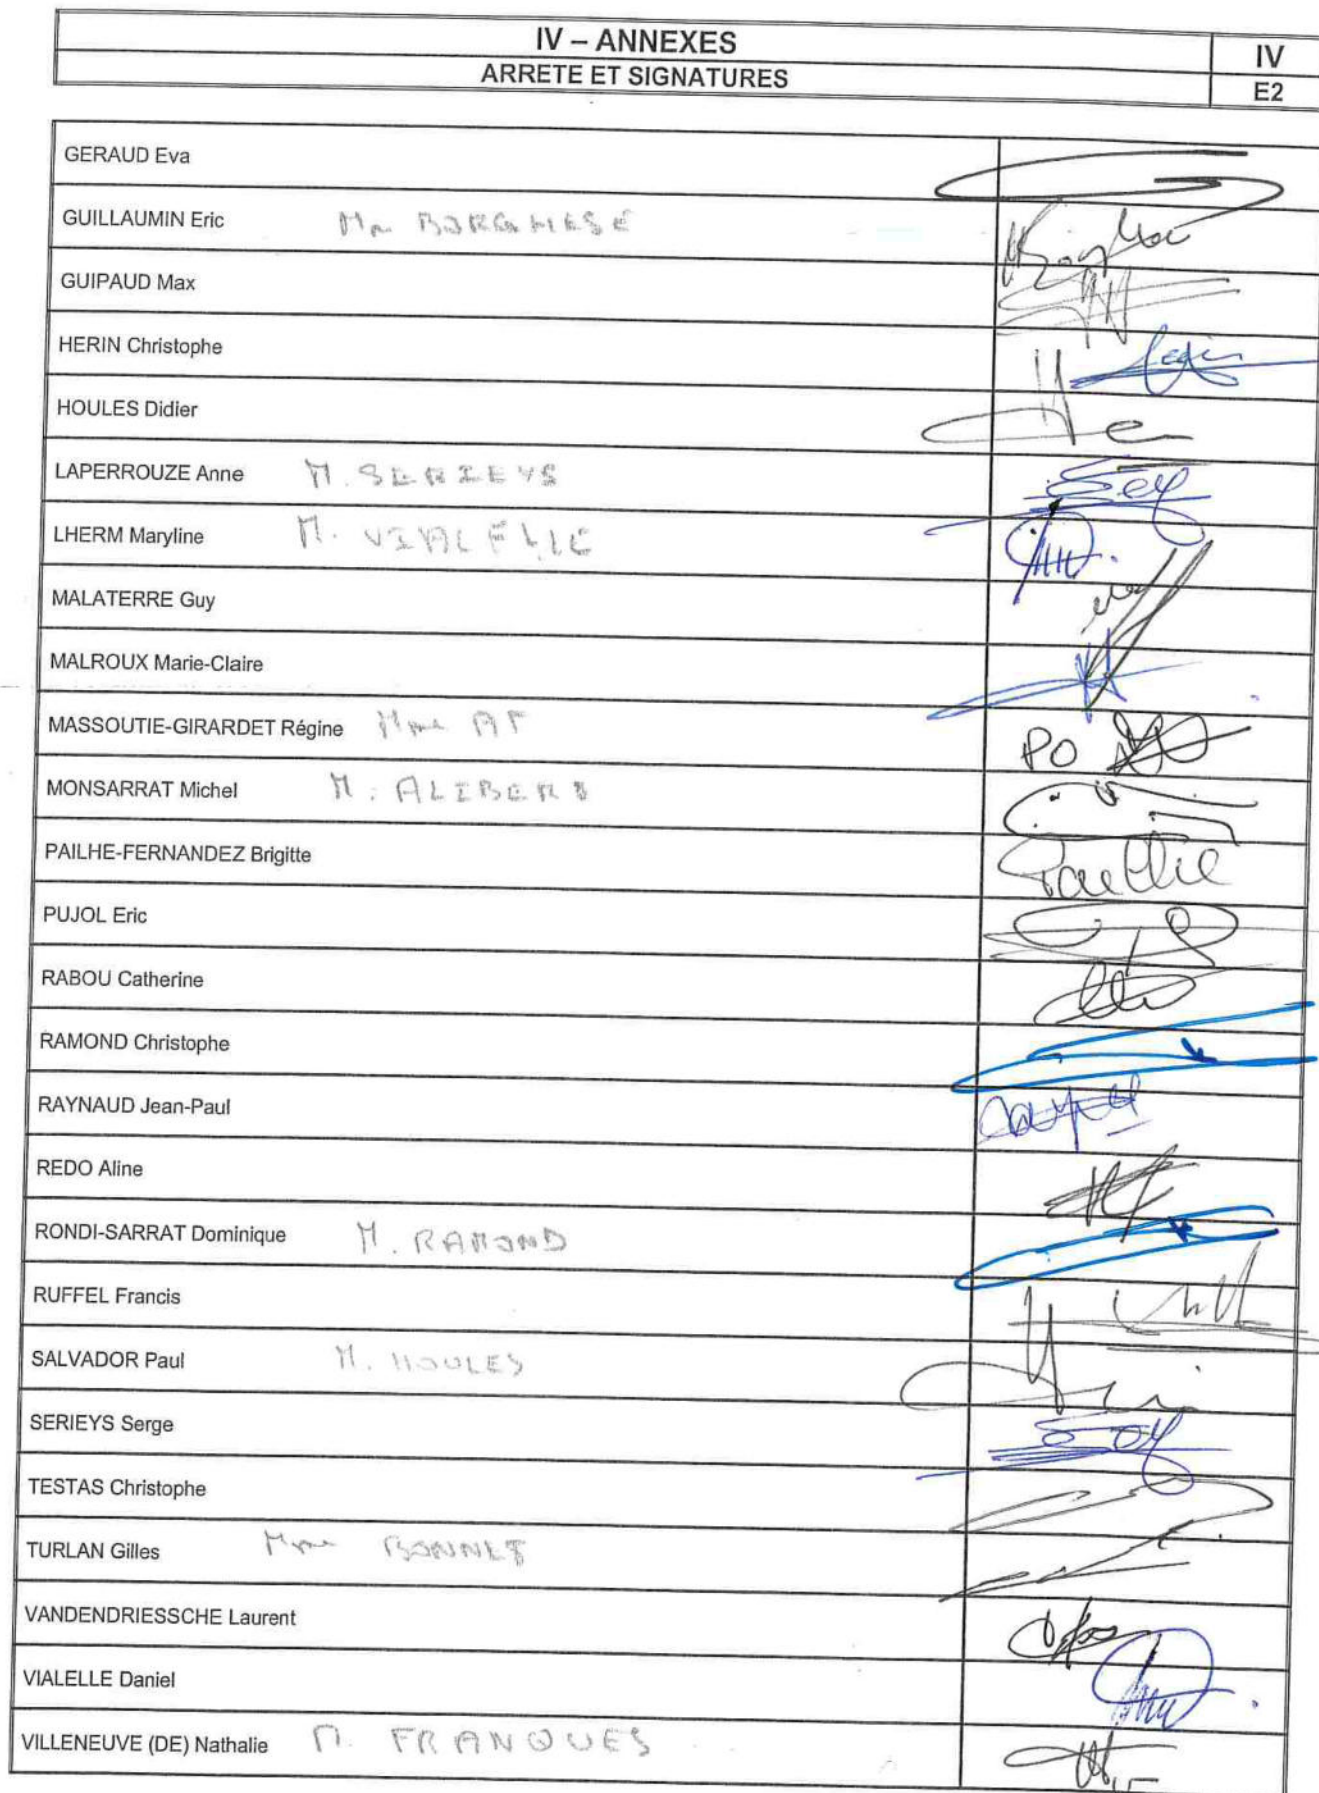 IV – ANNEXES IV
ARRETE ET SIGNATURES E2
GERAUD Eva
GUILLAUMIN Eric Mr BORGHESE
GUIPAUD Max
HERIN Christophe
HOULES Didier
LAPERROUZE Anne M. SERIEYS
LHERM Maryline M. VIALELLE
MALATERRE Guy
MALROUX Marie-Claire
MASSOUTIE-GIRARDET Régine Mme
MONSARRAT Michel M. ALIBERT PO
PAILHE-FERNANDEZ Brigitte
PUJOL Eric
RABOU Catherine
RAMOND Christophe
RAYNAUD Jean-Paul
REDO Aline
RONDI-SARRAT Dominique M. RAMOND
RUFFEL Francis
SALVADOR Paul M. HOULES
SERIEYS Serge
TESTAS Christophe
TURLAN Gilles Mme BONNET
VANDENDRIESSCHE Laurent
VIALELLE Daniel
VILLENEUVE (DE) Nathalie M. FRANQUES